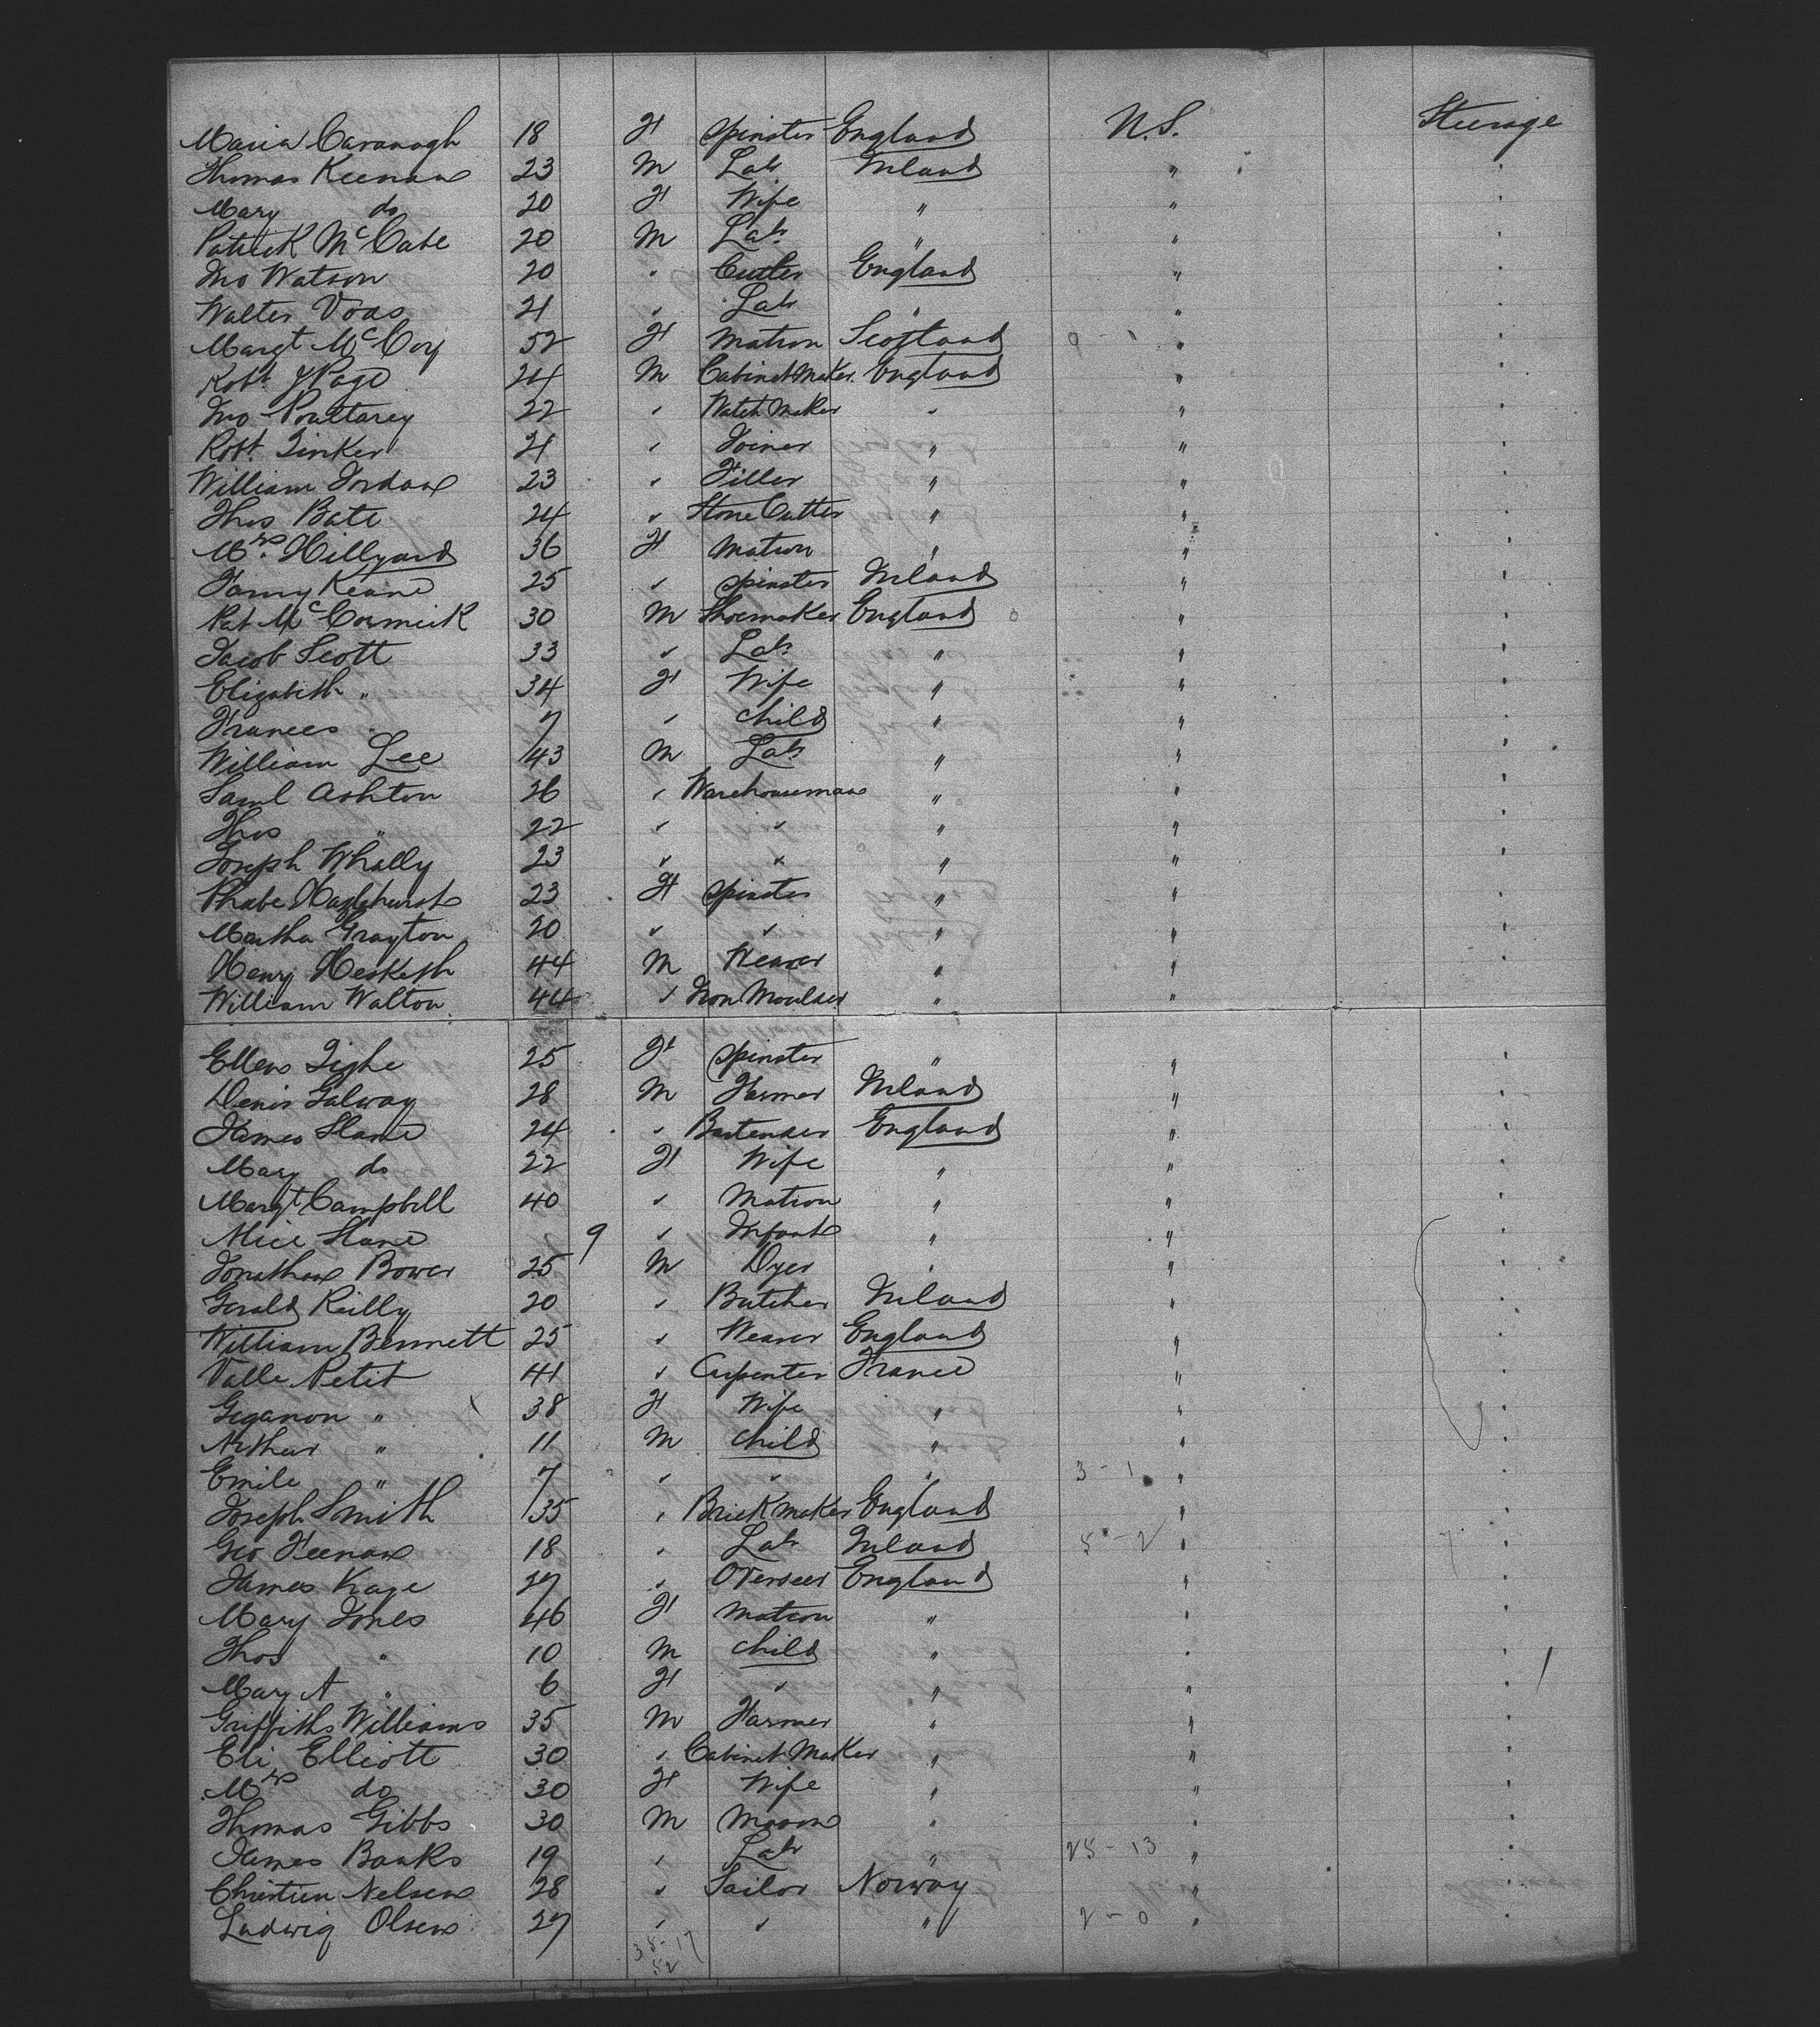 Maria Cavanagh 18 F Spinster England U.S. Steerage
Thomas Keenan 23 M Labr Ireland " "
Mary do 20 F Wife " " "
Patrick McCabe 20 M Labr " " "
Jno Watson 20 " Cutler England " "
Walter Voas 21 " Labr " " "
Margt McCoy 52 F Matron Scotland " "
Robt Page 24 M Cabinet Maker England " "
Jno Poultarey 22 " Watch Maker " " "
Robt Tinker 21 " Joiner " " "
William Jordan 23 " Filler " " "
Thos Bate 24 " Stone Cutter " " "
Mrs Hillyard 36 F Matron " " "
Fanny Keane 25 " Spinster Ireland " "
Pat McCormick 30 M Shoemaker England " "
Jacob Scott 33 " Labr " " "
Elizabeth " 34 F Wife " " "
Frances " 7 " Child " " "
William Lee 43 M Labr " " "
Saml Ashton 26 " Warehouseman " " "
Thos " 22 " " " " "
Joseph Whally 23 " " " " "
Phabe Haslehurst 23 F Spinster " " "
Martha Grayton 20 " " " " "
Henry Hesketh 44 M Weaver " " "
William Walton 44 " Iron Moulder " "
Ellen Tighe 25 F Spinster " " "
Denis Galway 28 M Farmer Ireland " "
James Slane 24 " Bartender England " "
Mary do 22 F Wife " " "
Margt Campbell 40 " Matron " " "
Alice Slane 9 " Infant " " "
Jonathan Bower 25 M Dyer " " "
Gerald Reilly 20 " Butcher Ireland " "
William Bennett 25 " Weaver England " "
Valle Petit 41 " Carpenter France " "
Giganon " 38 F Wife " " "
Arthur " 11 M Child " " "
Emile " 7 " " " 3-1 " "
Joseph Smith 35 " Brick maker England " "
Geo Feenan 18 " Labr Ireland 5-2 " "
James Kage 27 " Overseer England " "
Mary Jones 46 F Matron " " "
Thos " 10 M Child " " "
Mary A " 6 F " " " "
Griffiths Williams 35 M Farmer " " "
Eli Elliott 30 " Cabinet Maker " " "
Mrs do 30 F Wife " " "
Thomas Gibbs 30 M Mason " " "
James Banks 19 " Labr " 25-13 " "
Christien Nelsen 28 " Sailor Norway " "
Ludwig Olsen 27 " " " 2-0 " "
35-17
52